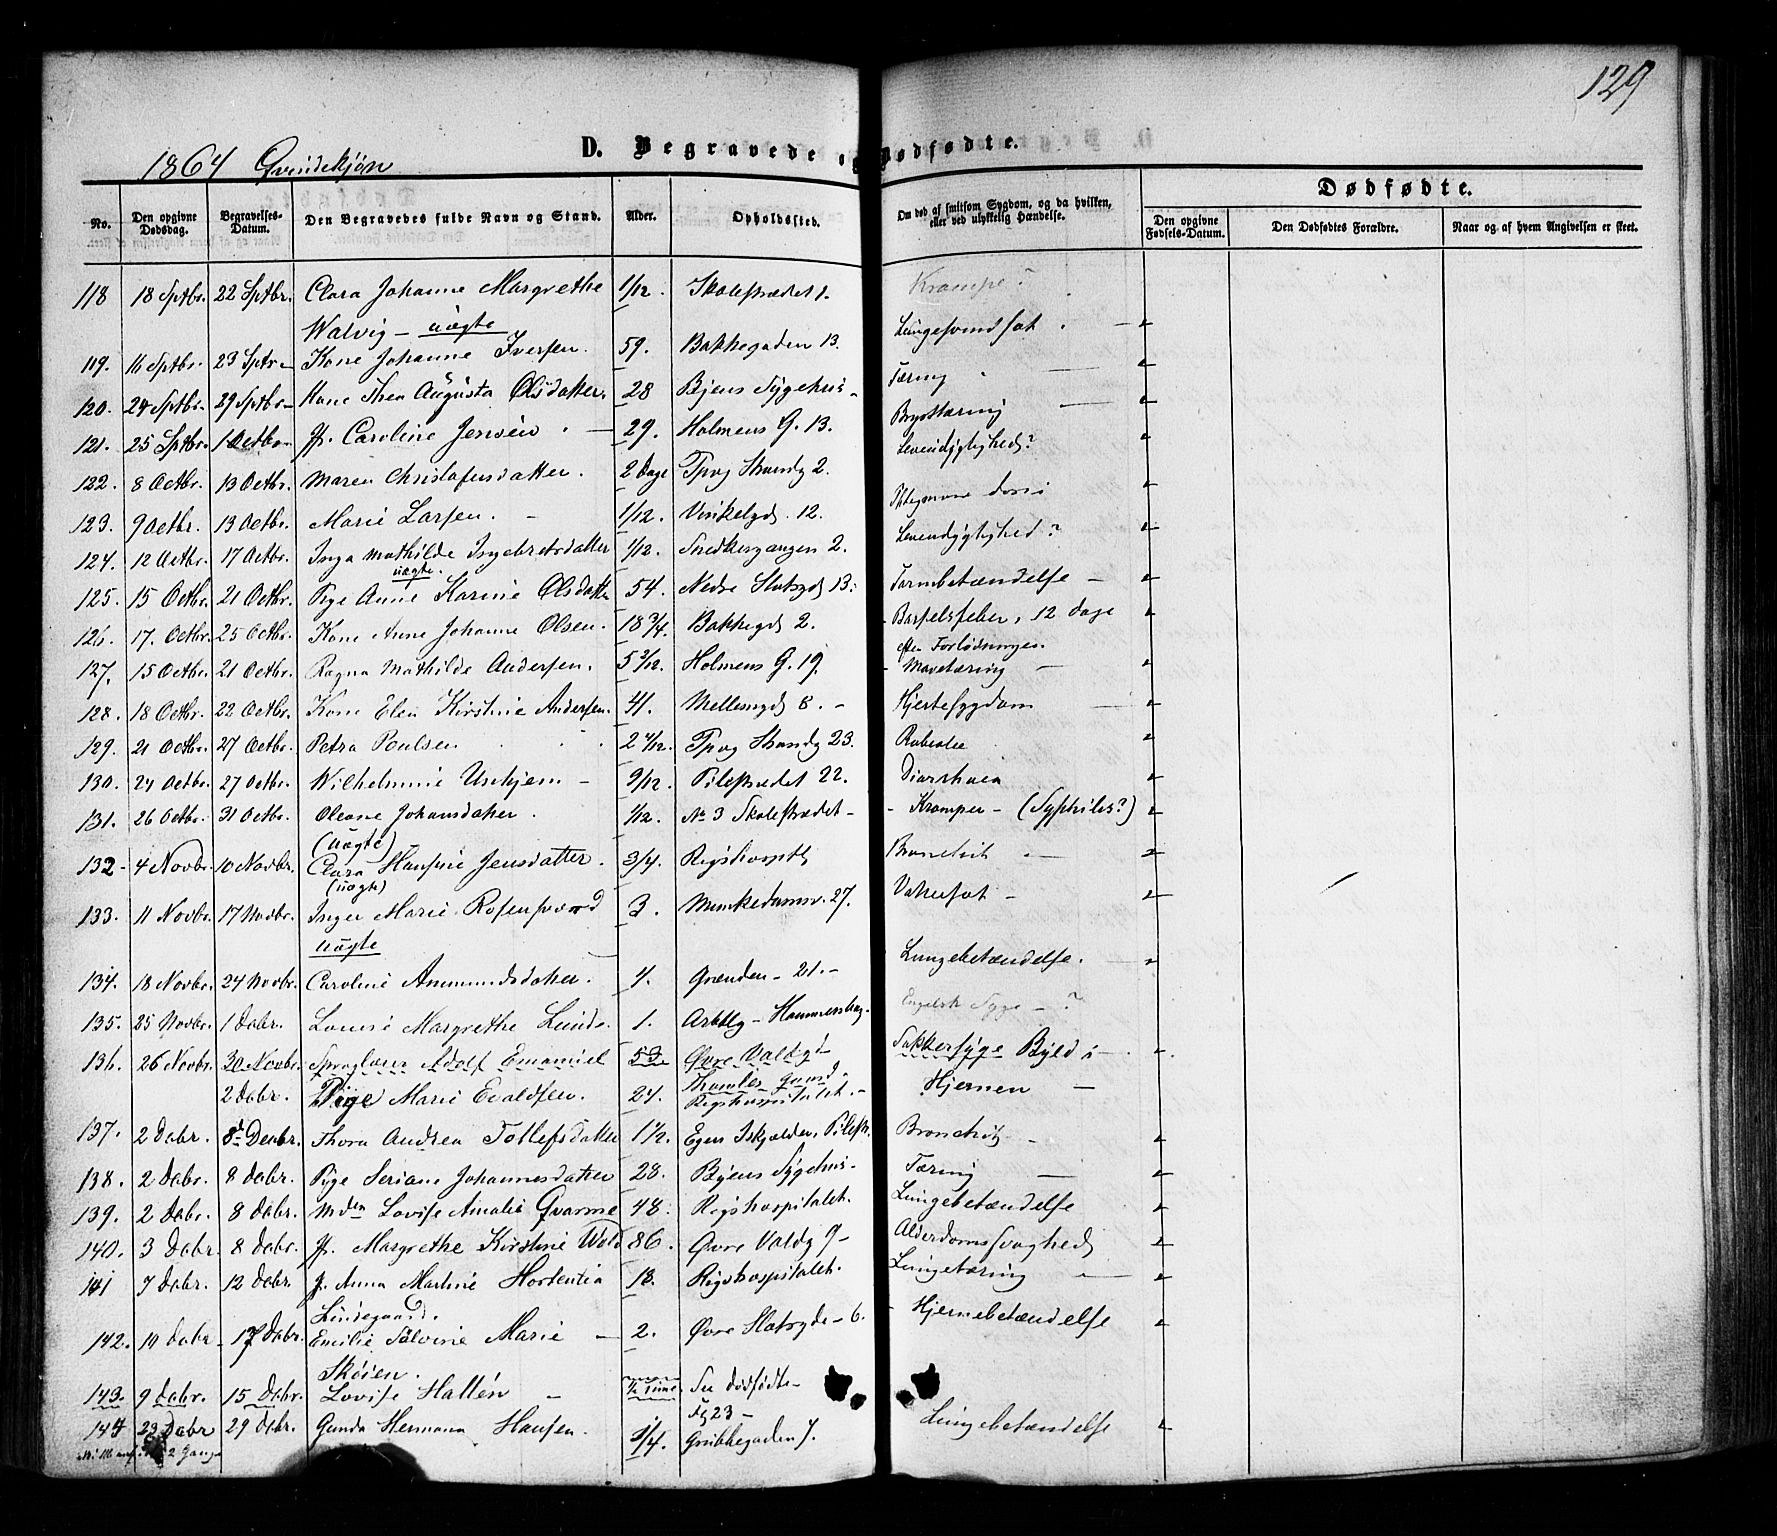 129
D. Begravede og Dødfødte.
1864 Qvindekjøn
Dødfødte.
No. Den opgivne Dødsdag. Begravelses-Datum. Den Begravedes fulde Navn og Stand. Alder. Opholdssted. Om død af smitsom Sygdom, og da hvilken, eller ved ulykkelig Hændelse. Den opgivne Fødsels-Datum. Den Dødfødtes Forældre. Naar og af hvem Angivelsen er skeet.
118 18 Sptbr. 22 Sptbr. Clara Johanne Margrethe 1/12 Skolestrædet 1. Krampe?
Walvig - uægte
119. 16 Sptbr. 23 Sptr Kone Johanne Iversen. 59. Bakkegaden 13. Lungesvindsot
120. 24 Sptbr. 29 Sptbr. Kone Thea Augusta Olsdatter. 28 Byens Sygehus Tæring
121. 25 Sptbr. 1 Octbr. Jfr. Caroline Jensen 29. Holmens G. 13. Brysttæring
122. 8 Octbr. 13 Octbr. Maren Christofersdatter. 2 Dage Tpvg Strandg 2. Levendygtighed?
123. 9 Octbr. 13 Octbr. Marie Larsen. 1/12. Vinkelgd. 12.
124. 12 Octbr. 17 Octbr. Inga Mathilde Ingebretsdatter 1/12. Snedkergangen 2. Levendygtighed?
uægte.
125. 15 Octbr. 21 Octbr. Pige Anne Karine Olsdatter 54. Nedre Slotsgd 13. Tarmbetændelse -
126. 17. Octbr. 25 Octbr. Kone Anne Johanne Olsen. 18 3/4. Bakkegd 2. Barselsfeber, 12 dage
efter Forløsningen.
127. 15 Octbr. 21 Octbr. Ragna Mathilde Andersen. 5 3/12. Holmens G. 19. Mavetæring
128. 18 Octbr. 22 Octbr. Kone Elen Kirstine Andersen. 41. Mellemgd 8. - Hjertesygdom
129. 21 Octbr. 27 Octbr. Petra Poulsen 2 4/12. Tpvg Strandg 23. Rubeolæ
130. 24 Octbr. 27 Octbr. Wilhelmine 9/12. Pilestrædet 22. Diarrhoea
131. 26 Octbr. 31 Octbr. Oleane Johansdatter. 1/12. No 3 Skolestrædet - Kramper - (Syphilis?)
(uægte)
132 - 4 Novbr. 10 Novbr. Clara Hansine Jensdatter. 3/4. Rigshospit. Bronchit
(uægte)
133. 11 Novbr. 17 Novbr. Inger Marie Rosensværd 3. Munkedamsv. 27. Vattersot -
uægte
134. 18 Novbr. 24 Novbr. Caroline Ammundsdatter. 4. Grønden - 21. - Lungebetændelse.
135. 25 Novbr. 1 Dcbr. Louise Margrethe Lund. 1. Arbdbg - Hammersborg. Engelsk Syge - ?
136. 26 Novbr. 30 Novbr. Adolf Emanuel 53. Øvre Voldgt Sukkersyge Byld i
2 Dcbr. Pige Marie Evaldsen. 24. Rigshospitalet. - Hjernen -
137. 2 Dcbr. 8 Decbr. Thora Andrea Tollefsdatter 1 1/2. Pilestr. Bronchit
138. 2 Dcbr. 8 Dcbr. Pige Seriane Johannesdatter 28. Byens Sygehus - Tæring
139. 2 Dcbr. 8 Dcbr. Mdm Lovise Amalie Qvarme 48. Rigshospitalet. Lungebetændelse
140. 3 Dcbr. 8 Dcbr. Jfr. Margrethe Kirstine Wold 86. Øvre Voldg 9 - Alderdomssvaghed
141 7 Dcbr. 12 Dcbr. J. Anna Martine Hortentia 18. Rigshospitalet. Lungetæring
Lindegaard.
142. 14 Dcbr. 17 Dcbr. Emilie Salvine Marie - 2. Øvre Slotsgd - 6. Hjernebetændelse
Skøien.
143. 9 Dcbr. 15 Dcbr. Lovise Hallén - 1/2 Time. Se dødfødte -
Fg 23 -
144 23 Dcbr 29 Dcbr. Gunda Hermana Hansen. 3/4. Grubbegaden 7. Lungebetændelse